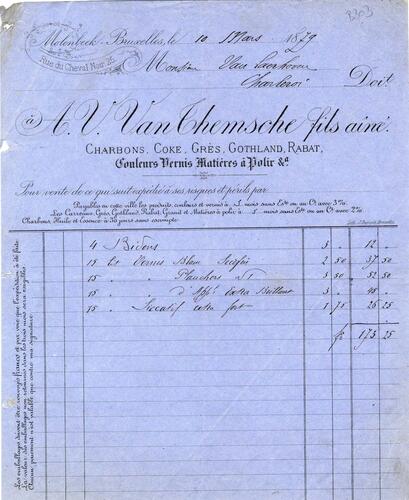 B303
Molenbeek-Bruxelles, le 10 Mars 1879
Rue du Cheval Noir 26
Monsieur Van
Charleroi
Doit
à A. V. Van Themsche fils aîné.
CHARBONS, COKE, GRÈS, GOTHLAND, RABAT,
Couleurs Vernis Matières à Polir &a.
Pour vente de ce qui suit expédié à ses risques et périls par
Payables en cette ville les produits, couleurs et vernis à 3 mois sans Este ou au Ct avec 3%.
Les Carreaux, Grès, Gothland, Rabat, Grand et Matières à polir à 3 mois sans Este ou au Ct avec 2%
Charbons Huile et Essence à 30 jours sans escompte
4 Bidons 3 12
15 Vernis Blanc 2 50 37 50
15 " 3 50 52 50
15 " d'App. Extra Brillant 3 45
15 " Siccatif extra fort 1 75 26 25
fr 173 25
Les emballages doivent être renvoyés franco et par une que l'expédition a été faite
La valeur des emballages non retournés dans les trois mois sera exigible
Chacun paiement n'est valable que contre ma signature